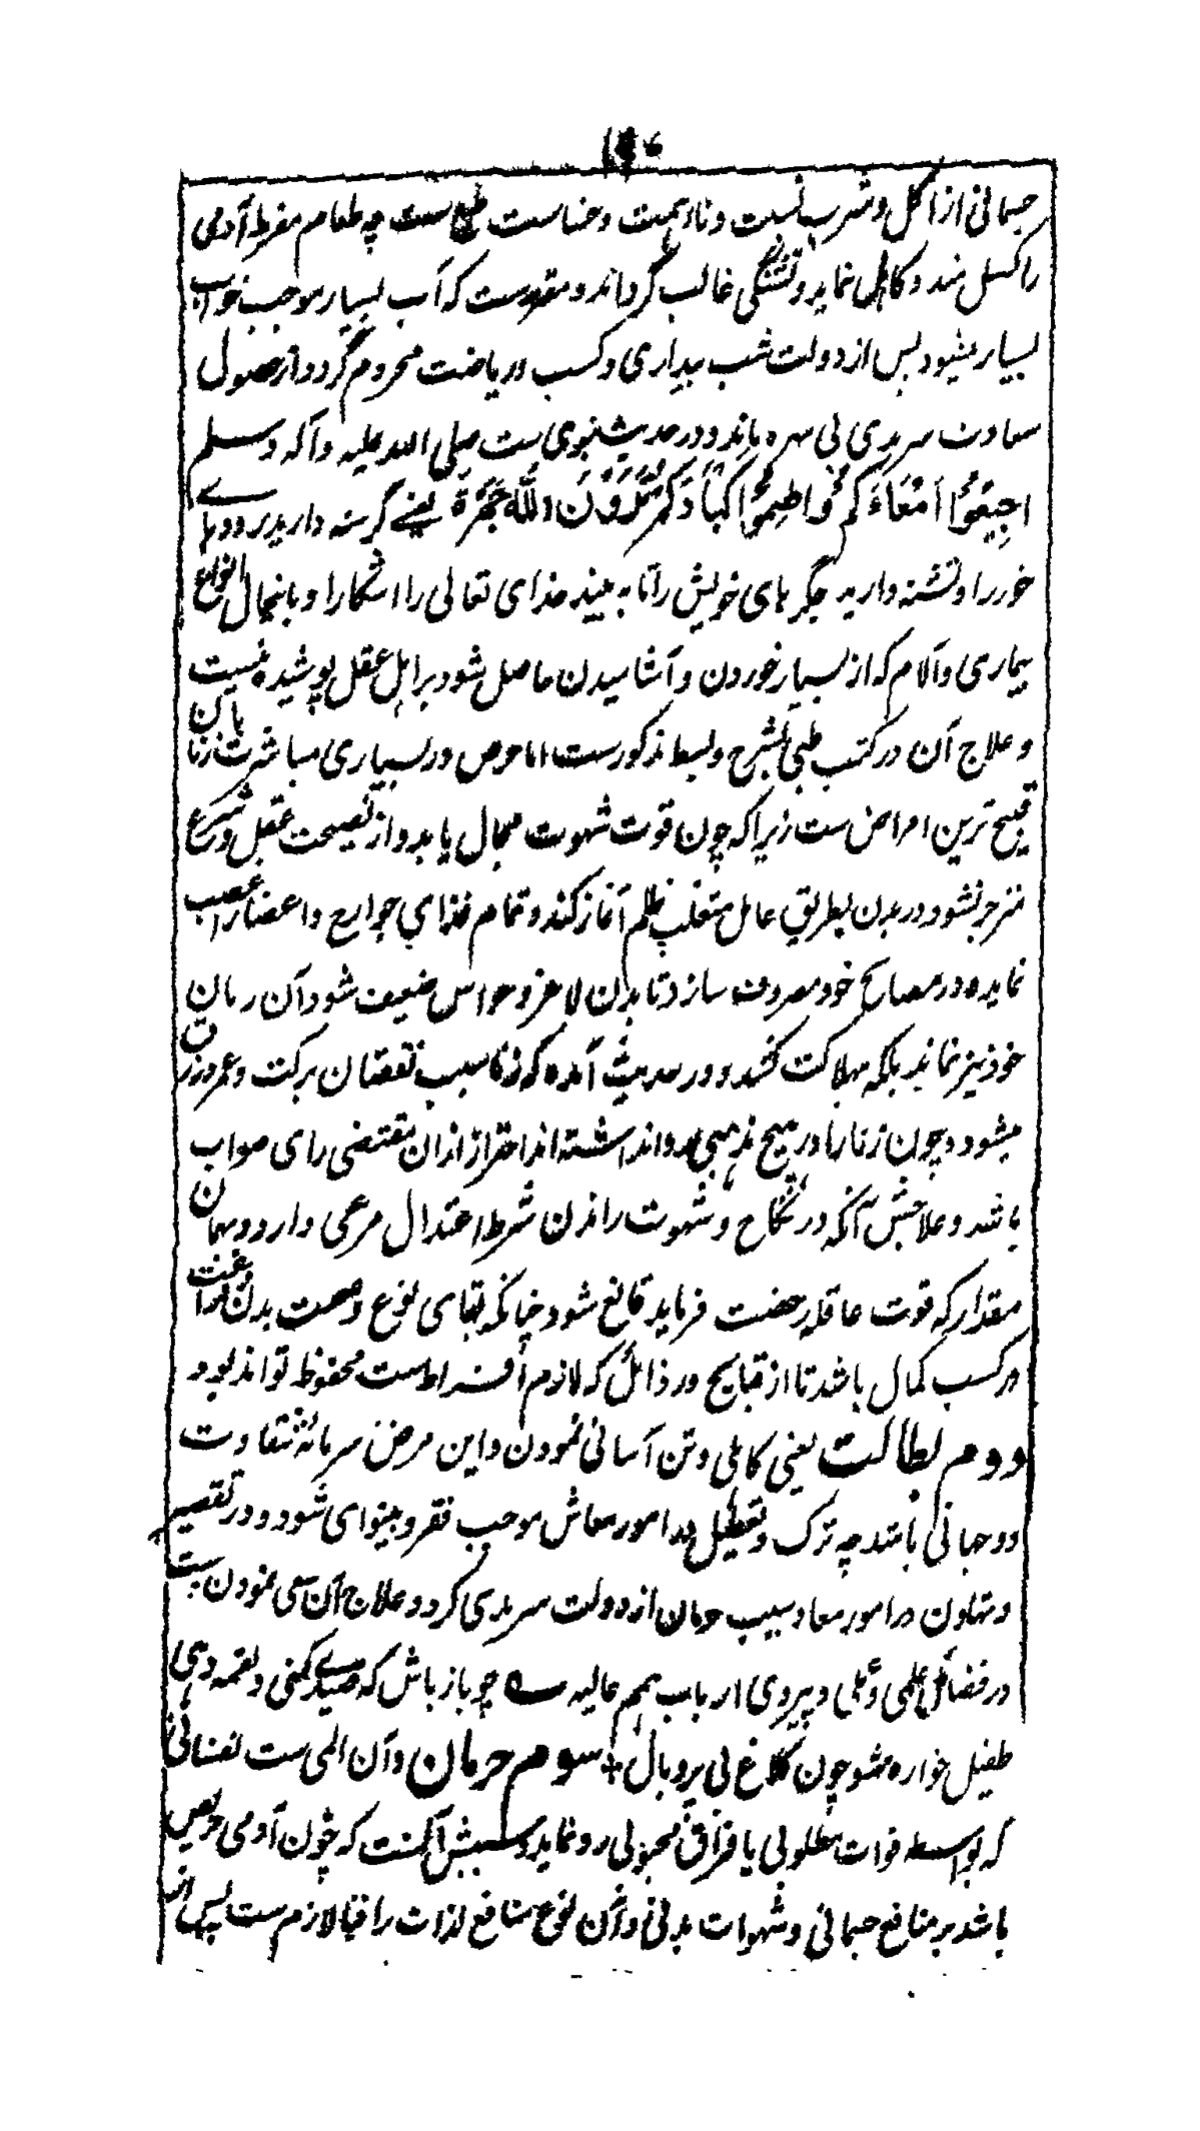 جسمانی از اکل و شرب نسبت و نا و همت و خساست طبع ست چه طعام مفرط آدمی
را کسل مند و کاهل نماید و تشنگی غالب گرداند و مقررست که آب بسیار موجب خواب
بسیار میشود پس از دولت شب بیداری و کسب و ریاضت محروم گردد و از حصول
سعادت سرمدی بی بهره ماند و در حدیث نبوی ست صلی الله علیه و آله وسلم
اجیعوا امعاءکم و اظمئوا اکبادکم ترون الله جهرة یعنے گرسنه دارید روده‌های
خود را و تشنه دارید جگرهای خویش را تا به بینید خدای تعالی را آشکارا و بااینحال انواع
بیماری و آلام که از بسیار خوردن و آشامیدن حاصل شود بر اهل عقل پوشیده نیست
و علاج آن در کتب طبی بشرح و بسط مذکورست اما حرص در بسیاری مباشرت با زنان
قبیح ترین امراض ست زیرا که چون قوت شهوت مجال یابد و از نصیحت عقل و شرع
منزجر نشود در بدن بطریق عامل متغلب ظلم آغاز کند و تمام غذای جوارح و اعضا را غصب
نماید و در مصالح خود مصروف سازد تا بدن لاغر و حواس ضعیف شود آن زمان
خود نیز نماند بلکه بهلاکت کشد و در حدیث آمده که زنا سبب نقصان برکت و عمر و رزق
میشود و چون زنا را در هیچ مذهبی روا نداشته اند احتراز ازان مقتضی رای صواب
باشد و علاجش آنکه در نکاح و شهوت راندن شرط اعتدال مرعی دارد و بهمان
مقدار که قوت عاقله رخصت فرماید قانع شود چنانکه بقای نوع و صحت بدن و فراغت
در کسب کمال باشد تا از قبایح و رذائل که لازم افراط ست محفوظ تواند بود
دوم بطالت یعنی کاهلی و تن آسانی نمودن و این مرض سرمایه شقاوت
دو جهانی باشد چه ترک و تعطیل در امور معاش موجب فقر و بینوای شود و در تقصیر
و تهاون در امور معاد سبب حرمان از دولت سرمدی گردد و علاج آن سعی نمودن ست
در فضائل علمی و عملی و پیروی ارباب همم عالیه ـه چو باز باش که صیدے کنی و لقمه دهی
طفیل خواره مشو چون کلاغ بی پر و بال + سوم حرمان و آن المی ست نفسانی
که بواسطه فوات مطلوبی یا فراق محبوبی رو نماید و سببش آنست که چون آدمی حریص
باشد بر منافع جسمانی و شهوات بدنی و آن نوع منافع لذات را فنا لازم ست پس